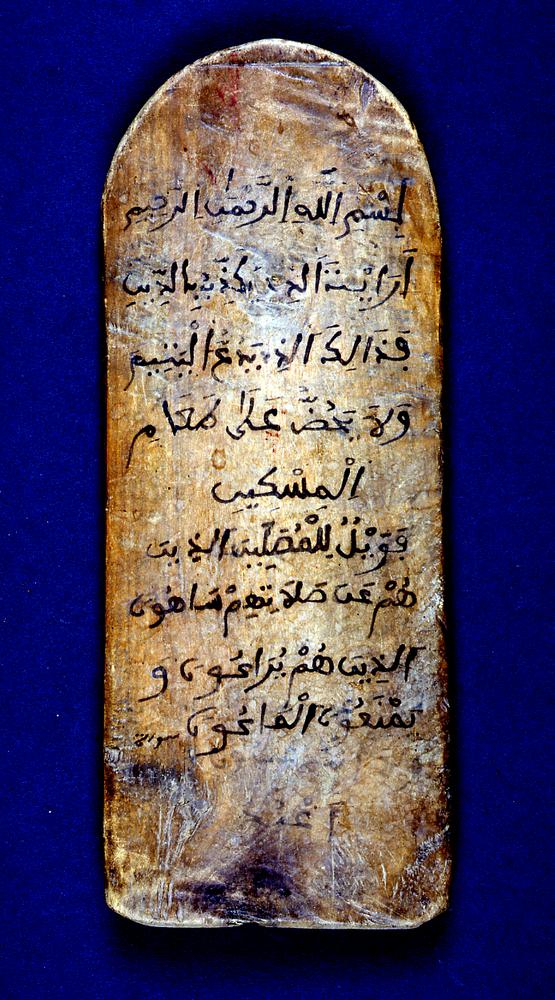 بِسْمِ اللَّهِ الرَّحْمَٰنِ الرَّحِيمِ
أَرَايْتَ الذِي يُكَذِّبُ بِالدِّينِ
فَذَالِكَ الذِي يَدُعُّ الْيَتِيمَ
وَلاَ يَحُضُّ عَلَىٰ طَعَامِ
الْمِسْكِينِ
فَوَيْلٌ لِلْمُصَلِّينَ الذِينَ
هُمْ عَن صَلاَتِهِمْ سَاهُونَ
الذِينَ هُمْ يُرَاءُونَ وَ
يَمْنَعُونَ الْمَاعُونَ